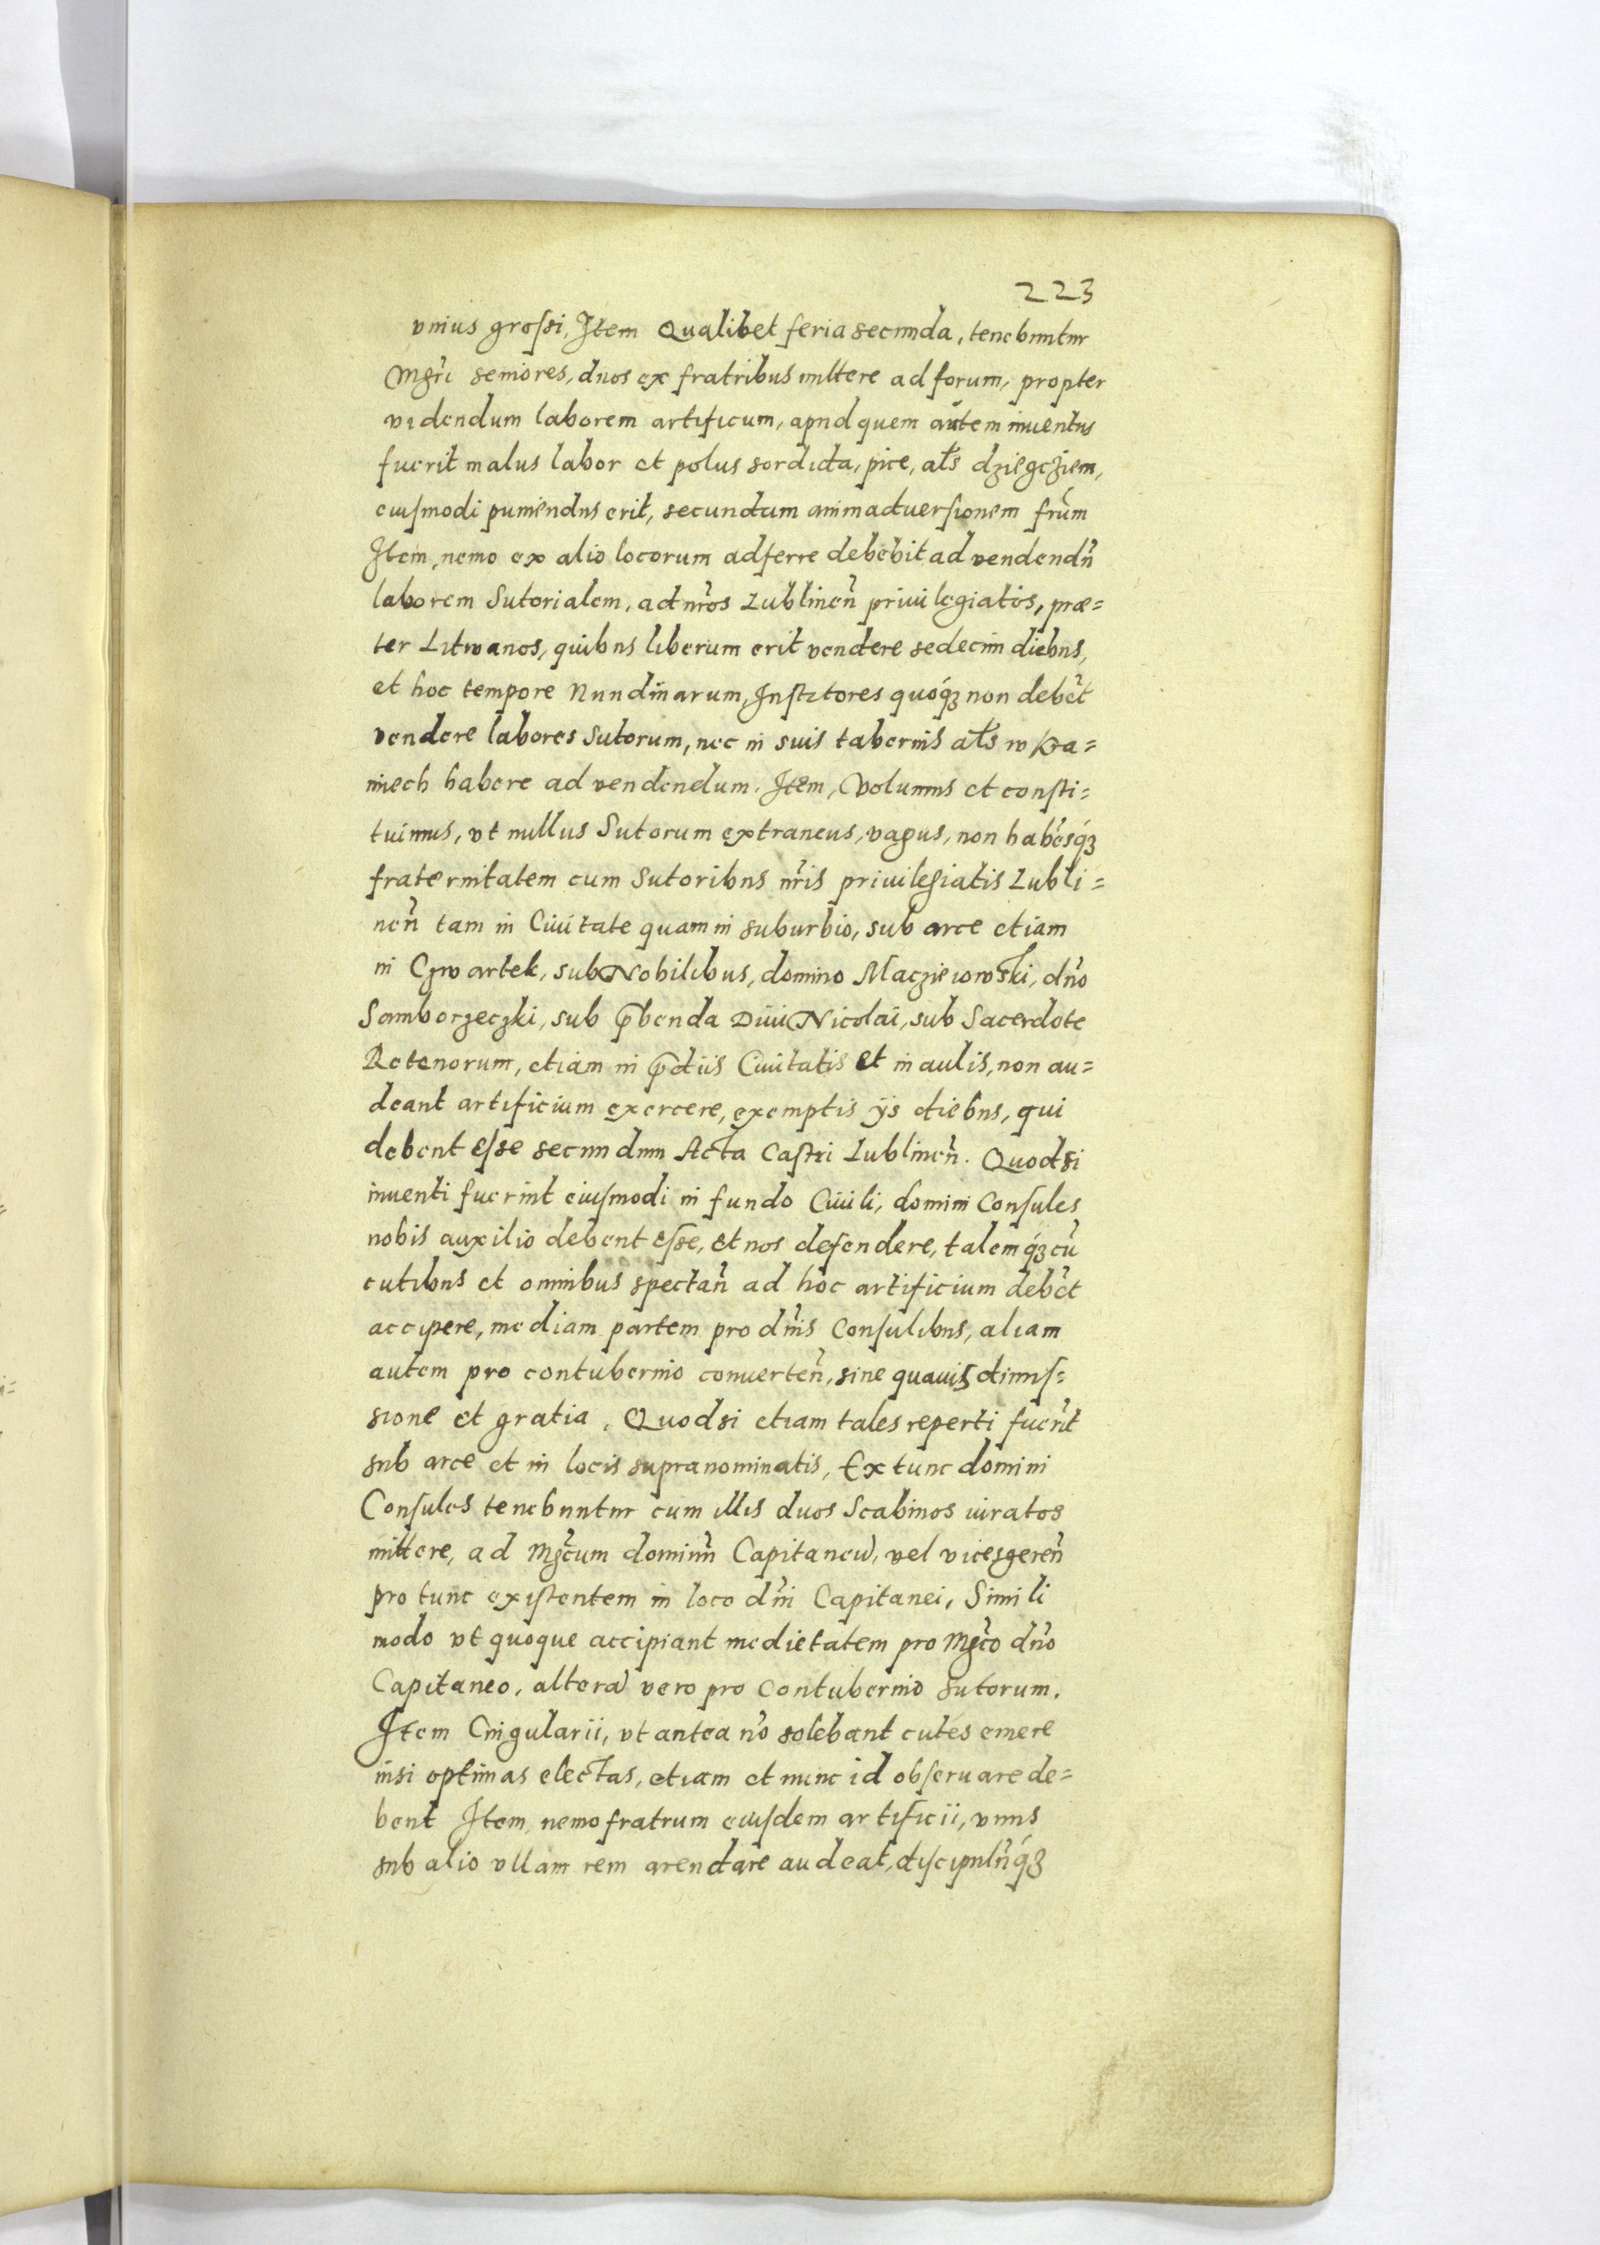 223
vnius grossi, Item Qualibet feria secunda, tenebuntur
Mgri seniores, duos ex fratribus mittere ad forum, propter
videndum laborem artificum, apud quem autem inuentus
fuerit malus labor et polus sordida, pice, als dziegcziem,
eiusmodi puniendus erit, secundum animaduersionem frum
Item, nemo ex alio locorum adferre debebit ad vendendn
laborem Sutorialem, ad nros Lublinen priuilegiatos, præ=
ter Litwanos, quibus liberum erit vendere sedecim diebus,
et hoc tempore Nundinarum, Institores quoqz non debet
vendere labores Sutorum, nec in suis tabernis als w kra=
miech habere ad vendendum. Item, Volumus et consti=
tuimus, vt nullus Sutorum extraneus, vagus, non habesqz
fraternitatem cum Sutoribus nris priuilegiatis Lubli=
nen tam in Ciuitate quam in suburbio, sub arce etiam
in Czwartek, sub Nobilibus, domino Macziewski, dno
Samborzeczki, sub pbenda Diui Nicolai, sub Sacerdote
Rotenorum, etiam in pdiis Ciuitatis et in aulis, non au=
deant artificium exercere, exemptis ijs diebus, qui
debent esse secundum Acta Castri Lublinen. Quodsi
inuenti fuerint eiusmodi in fundo Ciuili, domini Consules
nobis auxilio debent esse, et nos defendere, talemqz cu
cutibus et omnibus spectan ad hoc artificium debet
accipere, mediam partem pro dnis Consulibus, aliam
autem pro contubernio conuerten, sine quauis dimis=
sione et gratia. Quodsi etiam tales reperti fuernt
sub arce et in locis supranominatis, Ex tunc domini
Consules tenebuntur cum illis duos Scabinos iuratos
mittere, ad Mgcum dominum Capitaneu, vel vicesgeren
pro tunc existentem in loco dni Capitanei, Simili
modo vt quoque accipiant medietatem pro Mgco dno
Capitaneo, altera vero pro Contubernio sutorum.
Item Cingularii, vt antea no solebant cutes emere
nisi optimas electas, etiam et nunc id obseruare de=
bent Item, nemo fratrum eiusdem artificii, vnus
sub alio vllam rem arendare audeat, discipulnqz